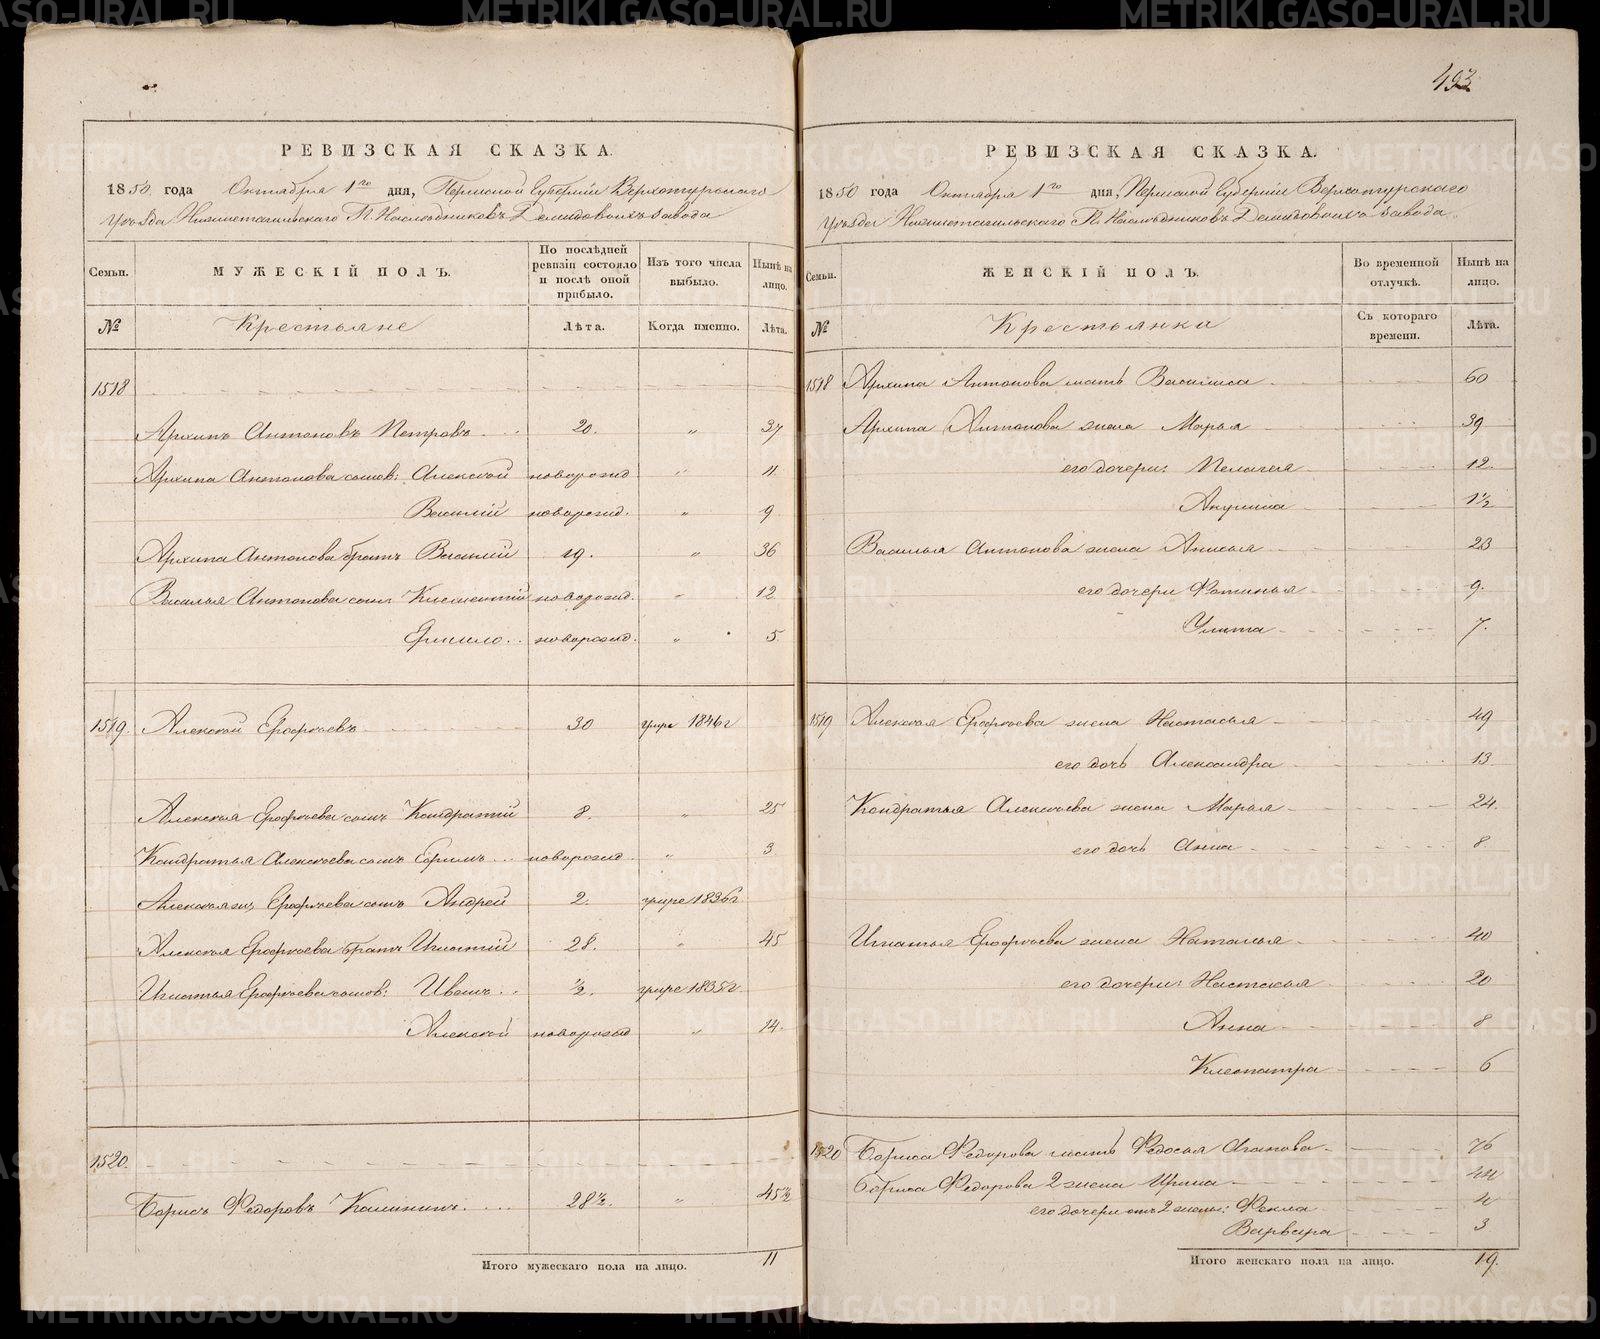 493
РЕВИЗСКАЯ СКАЗКА.
1850 года Октября 1го дня, Пермской Губернии Верхотурскаго
Уѣзда Нижнетагильскаго Г. Наслѣдниковъ Демидовыхъ завода
Семьи. МУЖЕСКІЙ ПОЛЪ. По послѣдней ревизіи состояло и послѣ оной прибыло. Изъ того числа выбыло. Нынѣ на лицо.
№ Крестьяне Лѣта. Когда именно. Лѣта.
1518
Архипъ Антоновъ Петровъ 20. " 37
Архипа Антонова сынов: Алексѣй новорожд " 11
Василій новорожд. " 9
Архипа Антонова братъ Василій 19. " 36
Василья Антонова сын: Климентій новорожд. " 12
Ермило новорожд. " 5
1519. Алексѣй Ерофѣевъ 30 умре 1846 г
Алексѣя Ерофѣева сынъ Кондратій 8. " 25
Кондратья Алексѣева сынъ Ефимъ новорожд " 3
Алексѣя Ерофѣева сынъ Андрей 2. умре 1836 г
Алексѣя Ерофѣева братъ Игнатій 28. " 45
Игнатья Ерофѣева сынов: Иванъ ½. умре 1835 г
Алексѣй новорожд " 14.
1520.
Борисъ Федоровъ Калининъ 28½. " 45½
Итого мужескаго пола на лицо. 11
РЕВИЗСКАЯ СКАЗКА.
1850 года Октября 1го дня, Пермской Губерніи Верхотурскаго
Уѣзда Нижнетагильскаго Г. Наслѣдниковъ Демидовыхъ завода
Семьи. ЖЕНСКІЙ ПОЛЪ. Во временной отлучкѣ. Нынѣ на лицо.
№ Крестьянки Съ котораго времени. Лѣта.
1518 Архипа Антонова мать Василиса 60
Архипа Антонова жена Марья 39
его дочери: Пелагея 12.
Акулина 1½
Василья Антонова жена Анисья 23
его дочери Фотинья 9.
Улита 7.
1519 Алексѣя Ерофѣева жена Настасья 49
его дочь Александра 13
Кондратья Алексѣева жена Марья 24.
его дочь Анна 8.
Игнатья Ерофѣева жена Наталья 40
его дочери: Настасья 20
Анна 8
Клеопатра 6
1520 Бориса Федорова мать Федосья Агапова 76
Бориса Федорова 2 жена Ирина 44
его дочери отъ 2 жены: Фекла 4
Варвара 3
Итого женскаго пола на лицо. 19.
METRIKI.GASO-URAL.RU